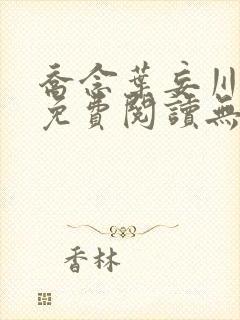 喬念葉妄川
免費閱讀無
香林